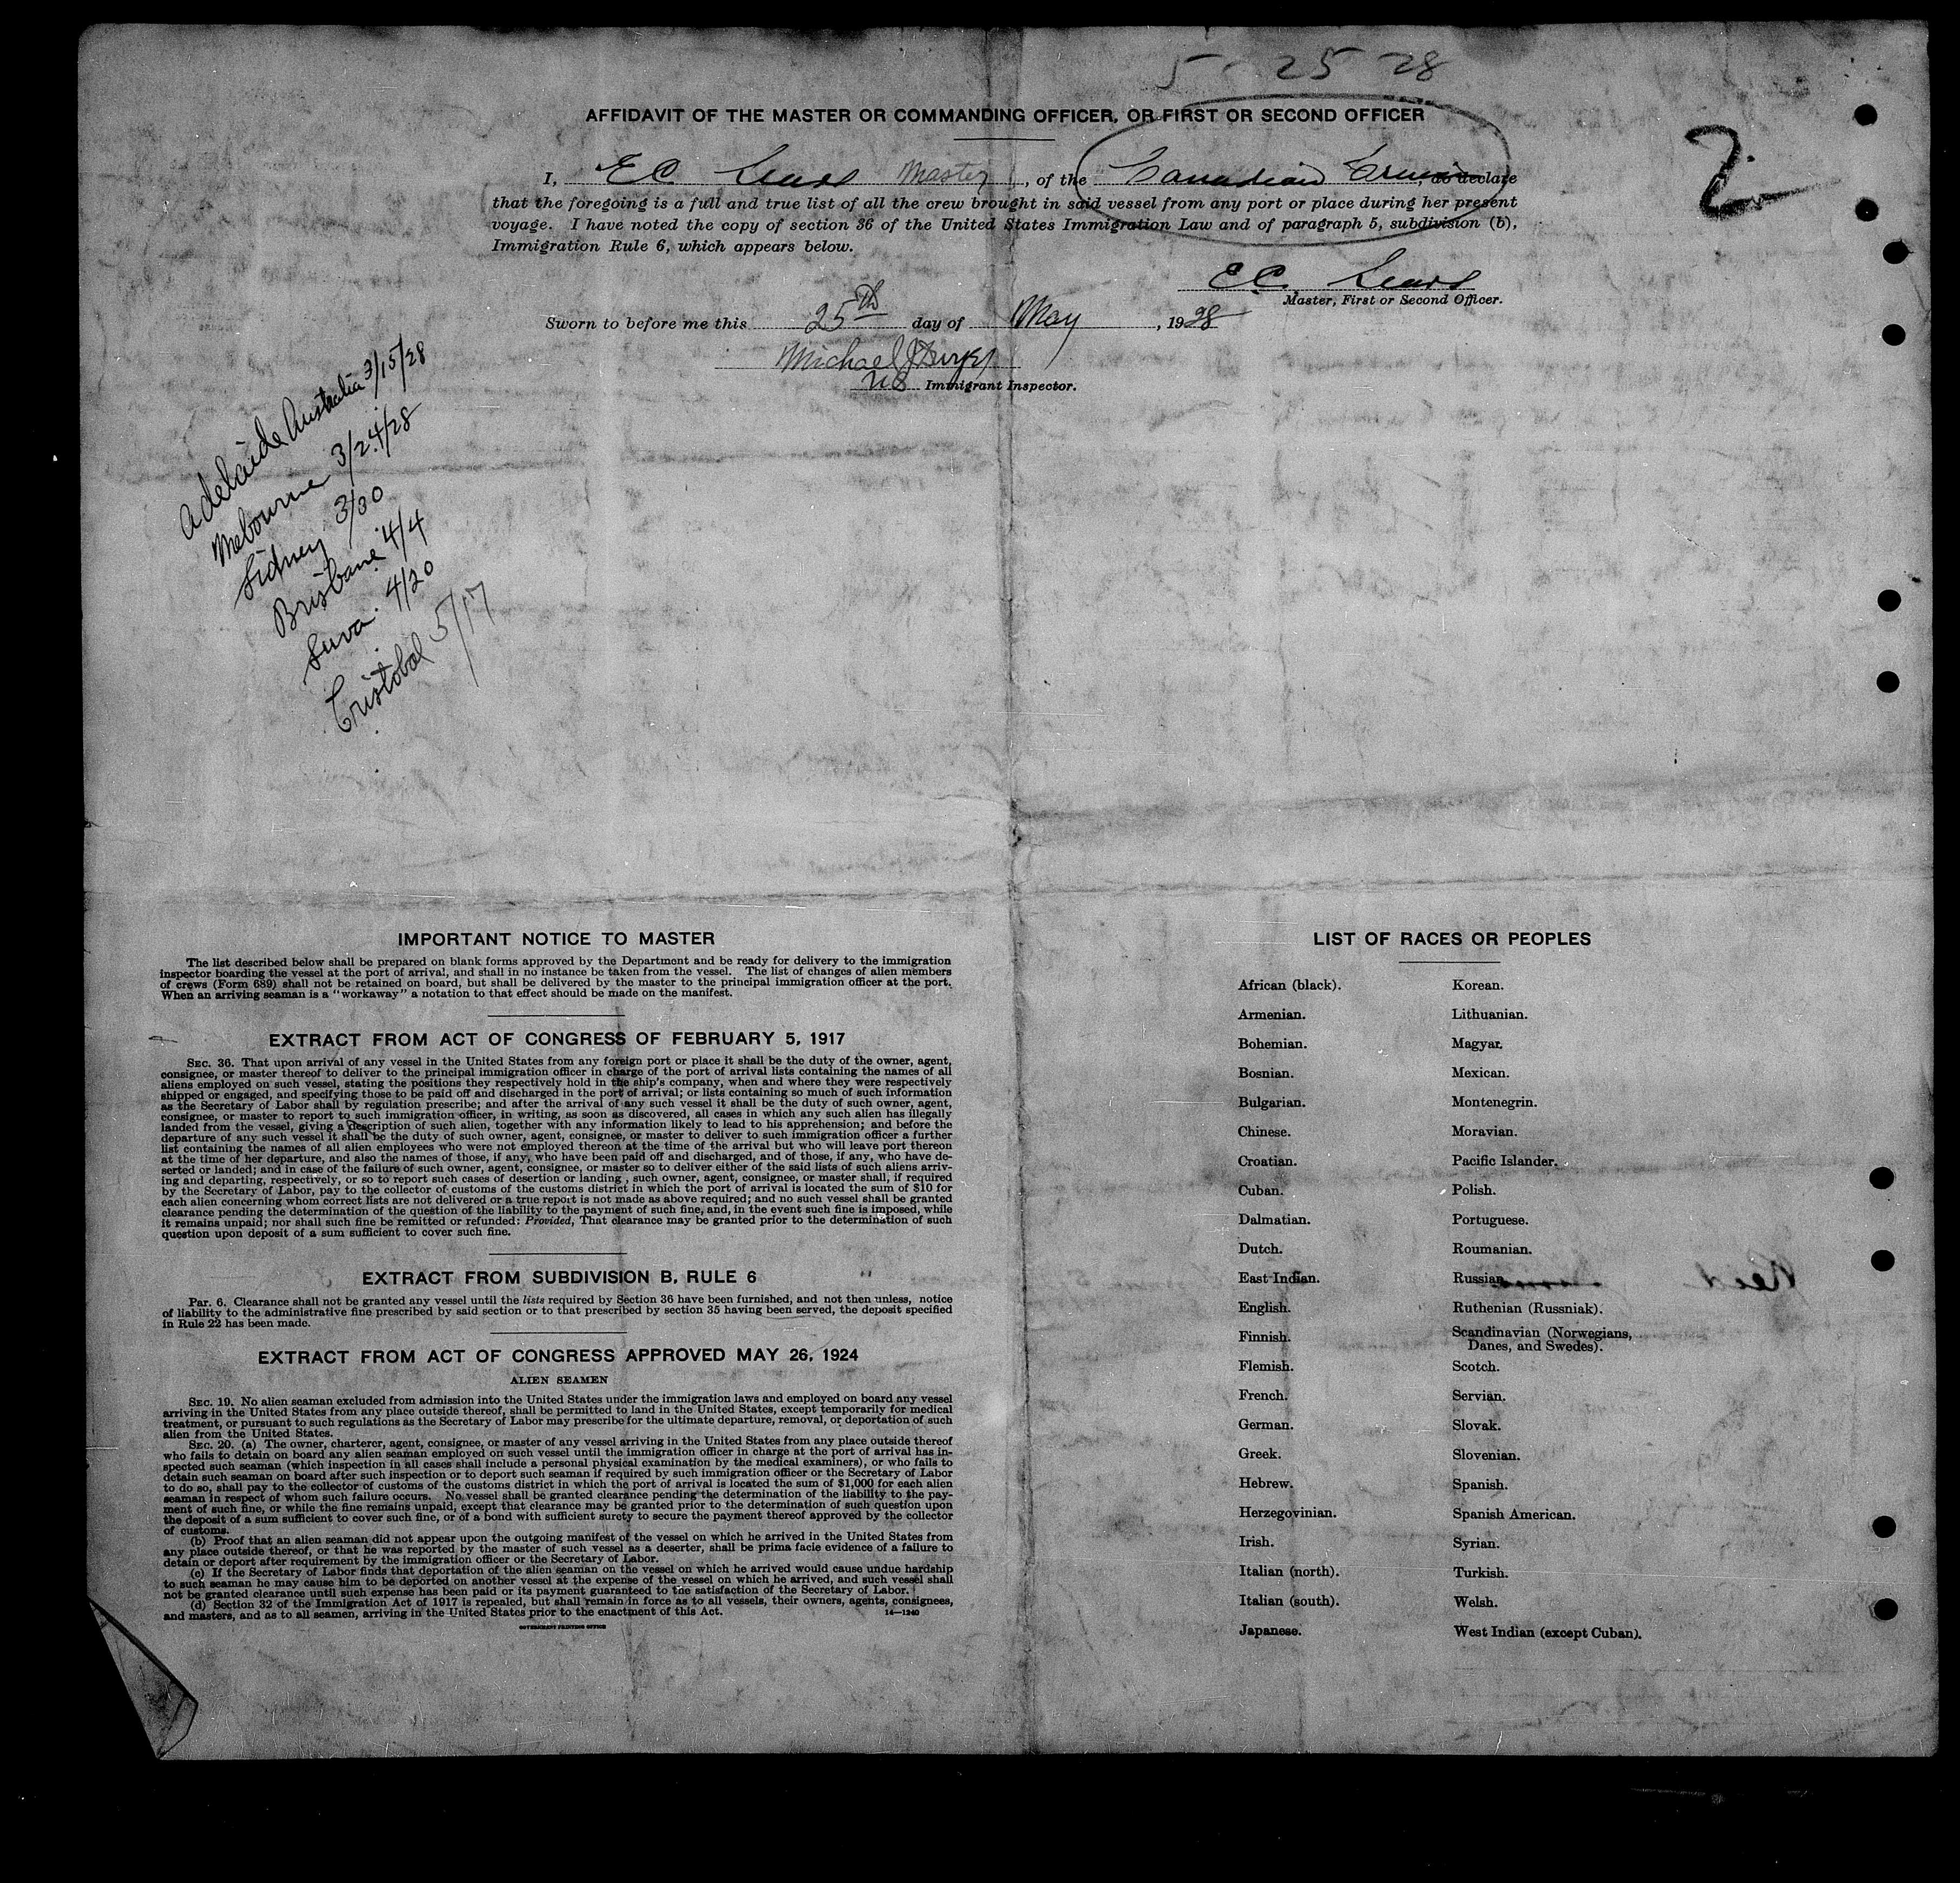 5-25-28
2
AFFIDAVIT OF THE MASTER OR COMMANDING OFFICER, OR FIRST OR SECOND OFFICER
I, E C Master, of the Canadian , do declare
that the foregoing is a full and true list of all the crew brought in said vessel from any port or place during her present
voyage. I have noted the copy of section 36 of the United States Immigration Law and of paragraph 5, subdivision (b),
Immigration Rule 6, which appears below.
E.C.
Master, First or Second Officer.
Sworn to before me this 25th day of May, 1928
Michael J
US Immigrant Inspector.
Adelaide Australia 3/15/28
Mebourne 3/24/28
Sidney 3/30
Brisbane 4/4
Suva 4/20
Cristobal 5/17
IMPORTANT NOTICE TO MASTER
The list described below shall be prepared on blank forms approved by the Department and be ready for delivery to the immigration
inspector boarding the vessel at the port of arrival, and shall in no instance be taken from the vessel. The list of changes of alien members
of crews (Form 689) shall not be retained on board, but shall be delivered by the master to the principal immigration officer at the port.
When an arriving seaman is a "workaway" a notation to that effect should be made on the manifest.
EXTRACT FROM ACT OF CONGRESS OF FEBRUARY 5, 1917
SEC. 36. That upon arrival of any vessel in the United States from any foreign port or place it shall be the duty of the owner, agent,
consignee, or master thereof to deliver to the principal immigration officer in charge of the port of arrival lists containing the names of all
aliens employed on such vessel, stating the positions they respectively hold in the ship's company, when and where they were respectively
shipped or engaged, and specifying those to be paid off and discharged in the port of arrival; or lists containing so much of such information
as the Secretary of Labor shall by regulation prescribe; and after the arrival of any such vessel it shall be the duty of such owner, agent,
consignee, or master to report to such immigration officer, in writing, as soon as discovered, all cases in which any such alien has illegally
landed from the vessel, giving a description of such alien, together with any information likely to lead to his apprehension; and before the
departure of any such vessel it shall be the duty of such owner, agent, consignee, or master to deliver to such immigration officer a further
list containing the names of all alien employees who were not employed thereon at the time of the arrival but who will leave port thereon
at the time of her departure, and also the names of those, if any, who have been paid off and discharged, and of those, if any, who have de-
serted or landed; and in case of the failure of such owner, agent, consignee, or master so to deliver either of the said lists of such aliens arriv-
ing and departing, respectively, or so to report such cases of desertion or landing, such owner, agent, consignee, or master shall, if required
by the Secretary of Labor, pay to the collector of customs of the customs district in which the port of arrival is located the sum of $10 for
each alien concerning whom correct lists are not delivered or a true report is not made as above required; and no such vessel shall be granted
clearance pending the determination of the question of the liability to the payment of such fine, and, in the event such fine is imposed, while
it remains unpaid; nor shall such fine be remitted or refunded: Provided, That clearance may be granted prior to the determination of such
question upon deposit of a sum sufficient to cover such fine.
EXTRACT FROM SUBDIVISION B, RULE 6
PAR. 6. Clearance shall not be granted any vessel until the lists required by Section 36 have been furnished, and not then unless, notice
of liability to the administrative fine prescribed by said section or to that prescribed by section 35 having been served, the deposit specified
in Rule 22 has been made.
EXTRACT FROM ACT OF CONGRESS APPROVED MAY 26, 1924
ALIEN SEAMEN
SEC. 19. No alien seaman excluded from admission into the United States under the immigration laws and employed on board any vessel
arriving in the United States from any place outside thereof, shall be permitted to land in the United States, except temporarily for medical
treatment, or pursuant to such regulations as the Secretary of Labor may prescribe for the ultimate departure, removal, or deportation of such
alien from the United States.
SEC. 20. (a) The owner, charterer, agent, consignee, or master of any vessel arriving in the United States from any place outside thereof
who fails to detain on board any alien seaman employed on such vessel until the immigration officer in charge at the port of arrival has in-
spected such seaman (which inspection in all cases shall include a personal physical examination by the medical examiners), or who fails to
detain such seaman on board after such inspection or to deport such seaman if required by such immigration officer or the Secretary of Labor
to do so, shall pay to the collector of customs of the customs district in which the port of arrival is located the sum of $1,000 for each alien
seaman in respect of whom such failure occurs. No vessel shall be granted clearance pending the determination of the liability to the pay-
ment of such fine, or while the fine remains unpaid, except that clearance may be granted prior to the determination of such question upon
the deposit of a sum sufficient to cover such fine, or of a bond with sufficient surety to secure the payment thereof approved by the collector
of customs.
(b) Proof that an alien seaman did not appear upon the outgoing manifest of the vessel on which he arrived in the United States from
any place outside thereof, or that he was reported by the master of such vessel as a deserter, shall be prima facie evidence of a failure to
detain or deport after requirement by the immigration officer or the Secretary of Labor.
(c) If the Secretary of Labor finds that deportation of the alien seaman on the vessel on which he arrived would cause undue hardship
to such seaman he may cause him to be deported on another vessel at the expense of the vessel on which he arrived, and such vessel shall
not be granted clearance until such expense has been paid or its payment guaranteed to the satisfaction of the Secretary of Labor.
(d) Section 32 of the Immigration Act of 1917 is repealed, but shall remain in force as to all vessels, their owners, agents, consignees,
and masters, and as to all seamen, arriving in the United States prior to the enactment of this Act.
14—1240
GOVERNMENT PRINTING OFFICE
LIST OF RACES OR PEOPLES
African (black).
Armenian.
Bohemian.
Bosnian.
Bulgarian.
Chinese.
Croatian.
Cuban.
Dalmatian.
Dutch.
East Indian.
English.
Finnish.
Flemish.
French.
German.
Greek.
Hebrew.
Herzegovinian.
Irish.
Italian (north).
Italian (south).
Japanese.
Korean.
Lithuanian.
Magyar.
Mexican.
Montenegrin.
Moravian.
Pacific Islander.
Polish.
Portuguese.
Roumanian.
Russian.
Ruthenian (Russniak).
Scandinavian (Norwegians,
Danes, and Swedes).
Scotch.
Servian.
Slovak.
Slovenian.
Spanish.
Spanish American.
Syrian.
Turkish.
Welsh.
West Indian (except Cuban).